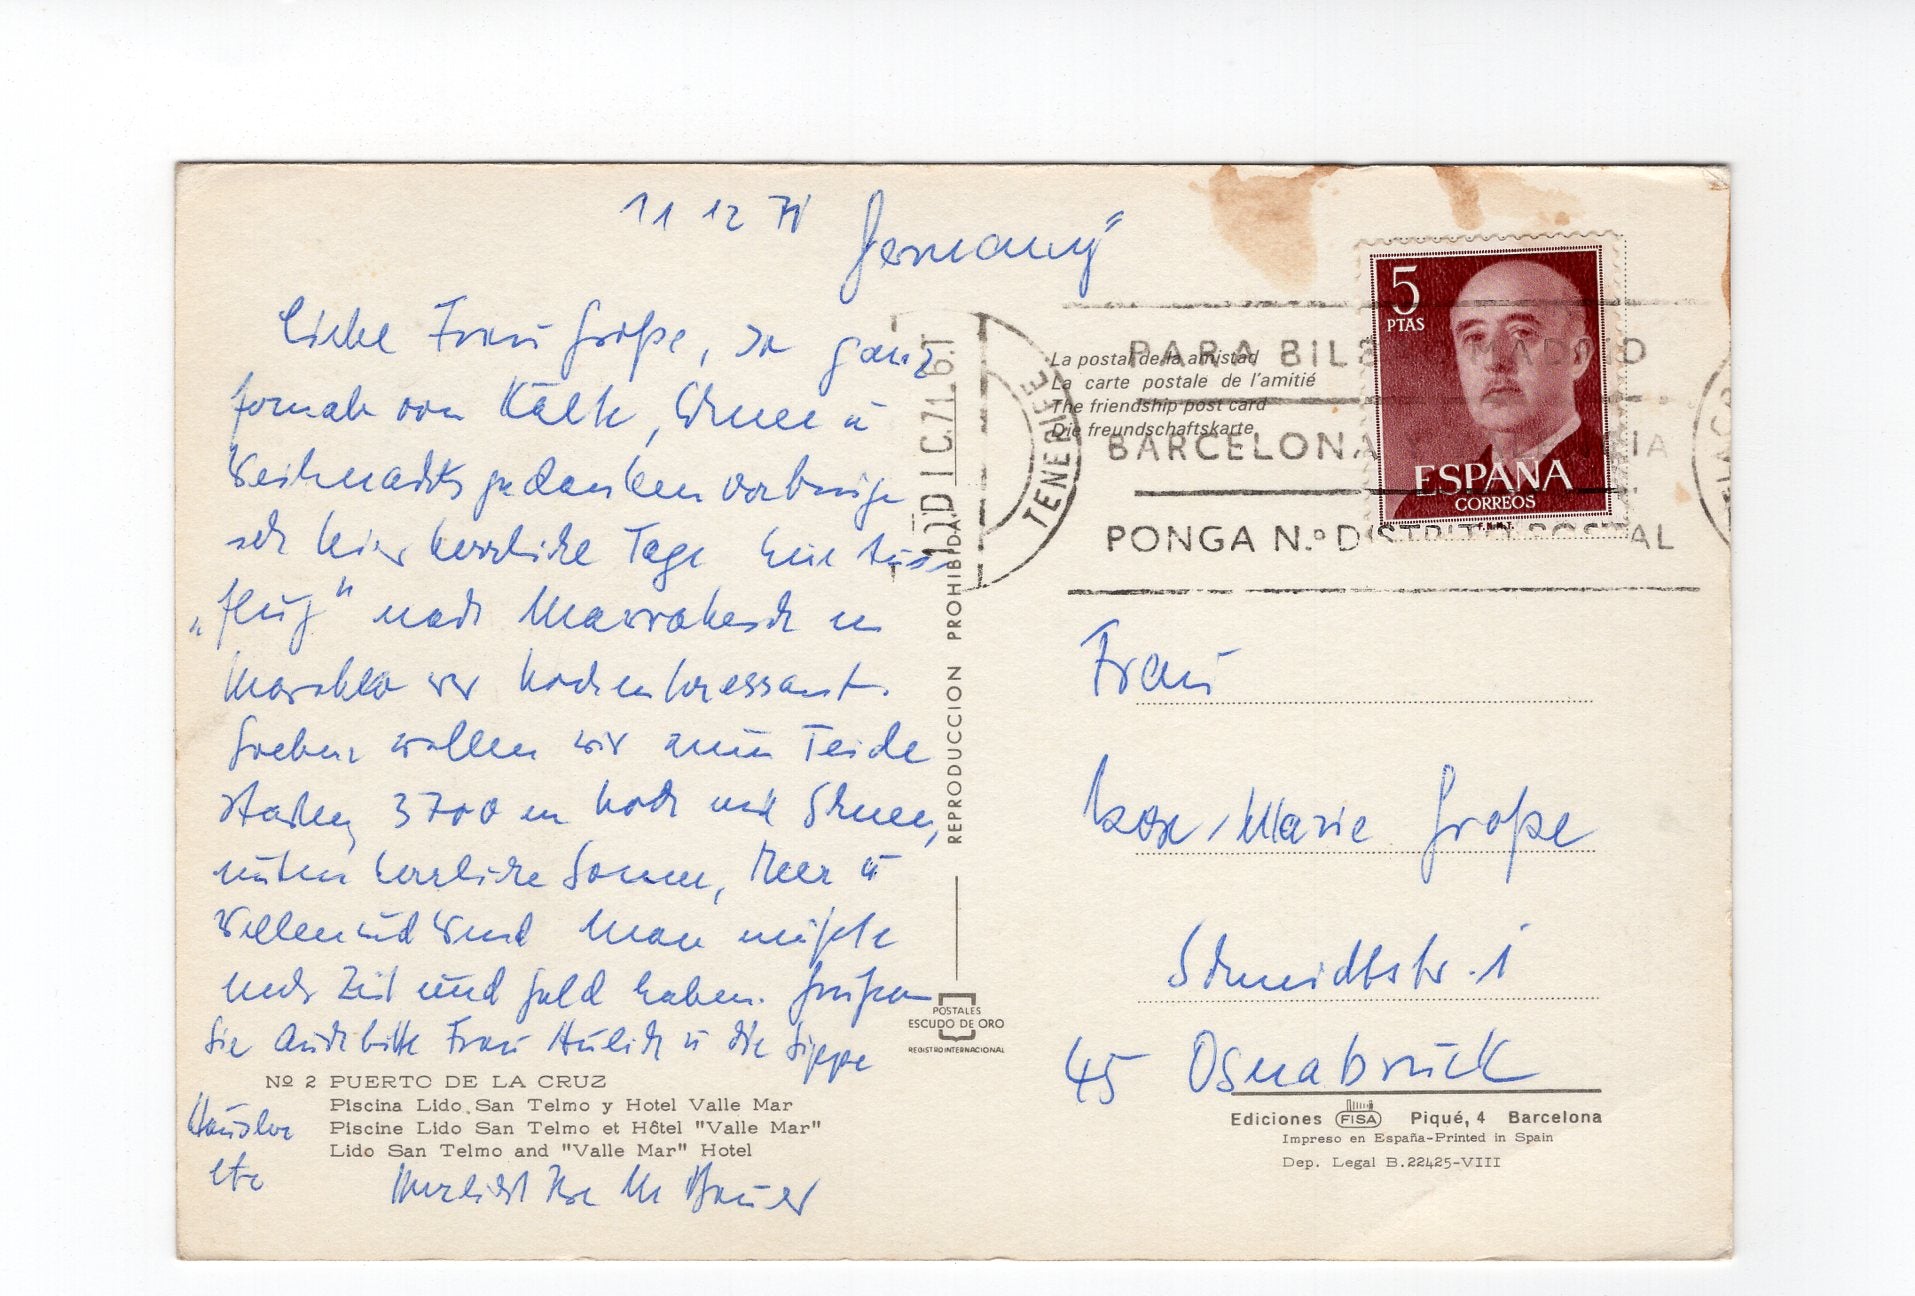 11 12 71
Germany"
Liebe Frau Große, so ganz
fernab von Kälte, Schnee u
Weihnachtsgedanken verbringe
ich hier herrliche Tage Ein Aus-
"flug" nach Marrakesch in
Marokko war hochinteressant.
Soeben wollen wir zum Teide
starten, 3700 m hoch mit Schnee,
unten herrliche Sonne, Meer u
Wellen und Wind Man müßte
mehr Zeit und Geld haben. Grüßen
Sie auch bitte Frau u die Sippe
etc
Herzlichst Ihre M Bauer
Nº 2 PUERTO DE LA CRUZ
Piscina Lido San Telmo y Hotel Valle Mar
Piscine Lido San Telmo et Hôtel "Valle Mar"
Lido San Telmo and "Valle Mar" Hotel
REPRODUCCION PROHIBIDA
POSTALES
ESCUDO DE ORO
REGISTRO INTERNACIONAL
DIC.71
TENERIFE
La postal de la amistad
La carte postale de l'amitié
The friendship post card
Die freundschaftskarte
PARA BILBAO MADRID
BARCELONA Y
PONGA N.º DISTRITO POSTAL
5
PTAS
ESPAÑA
CORREOS
Frau
Marie Große
Schmidtstr. 1
45 Osnabrück
Ediciones FISA Piqué, 4 Barcelona
Impreso en España-Printed in Spain
Dep. Legal B.22425-VIII